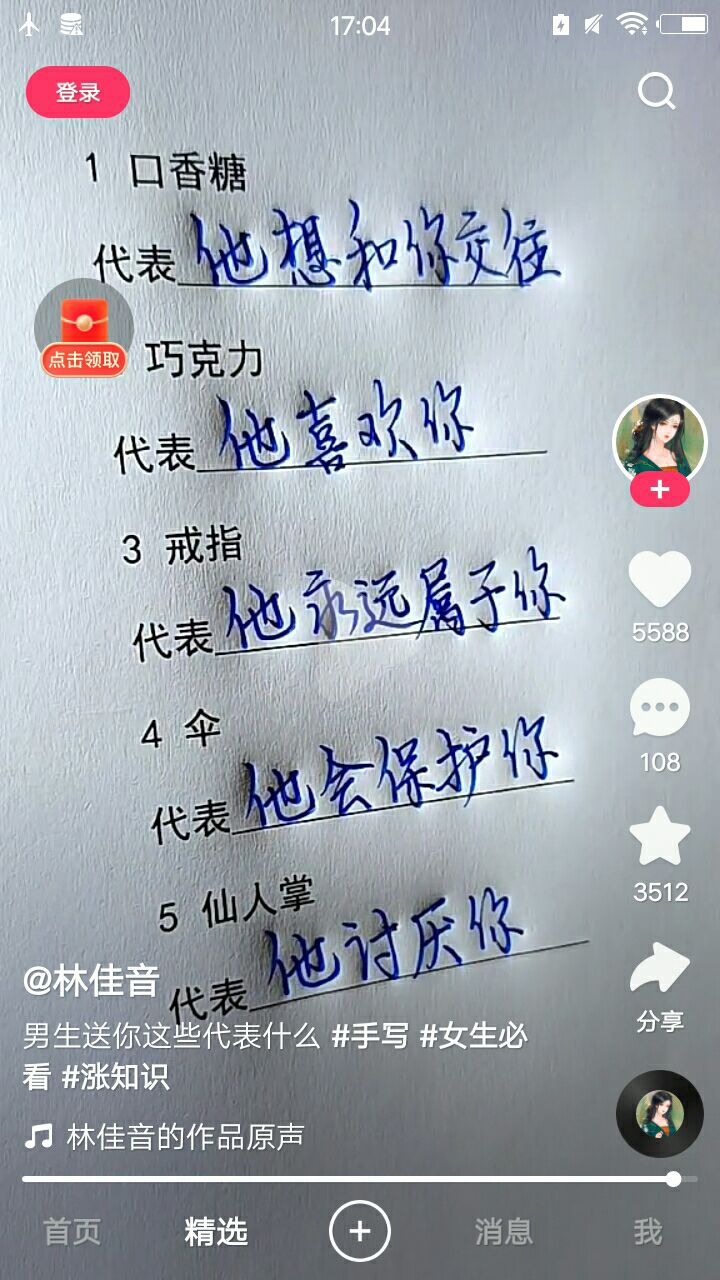 17:04
登录
1 口香糖
代表 他想和你交往
点击领取
巧克力
代表 他喜欢你
3 戒指
代表 他永远属于你
5588
4 伞
代表 他会保护你
108
3512
5 仙人掌
代表 他讨厌你
分享
@林佳音
男生送你这些代表什么 #手写 #女生必
看 #涨知识
林佳音的作品原声
首页 精选 消息 我